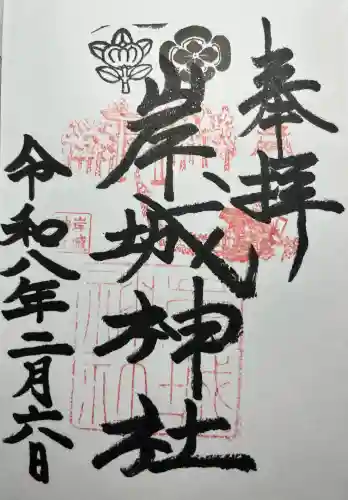 奉拝
岸城神社
令和八年二月六日
岸城